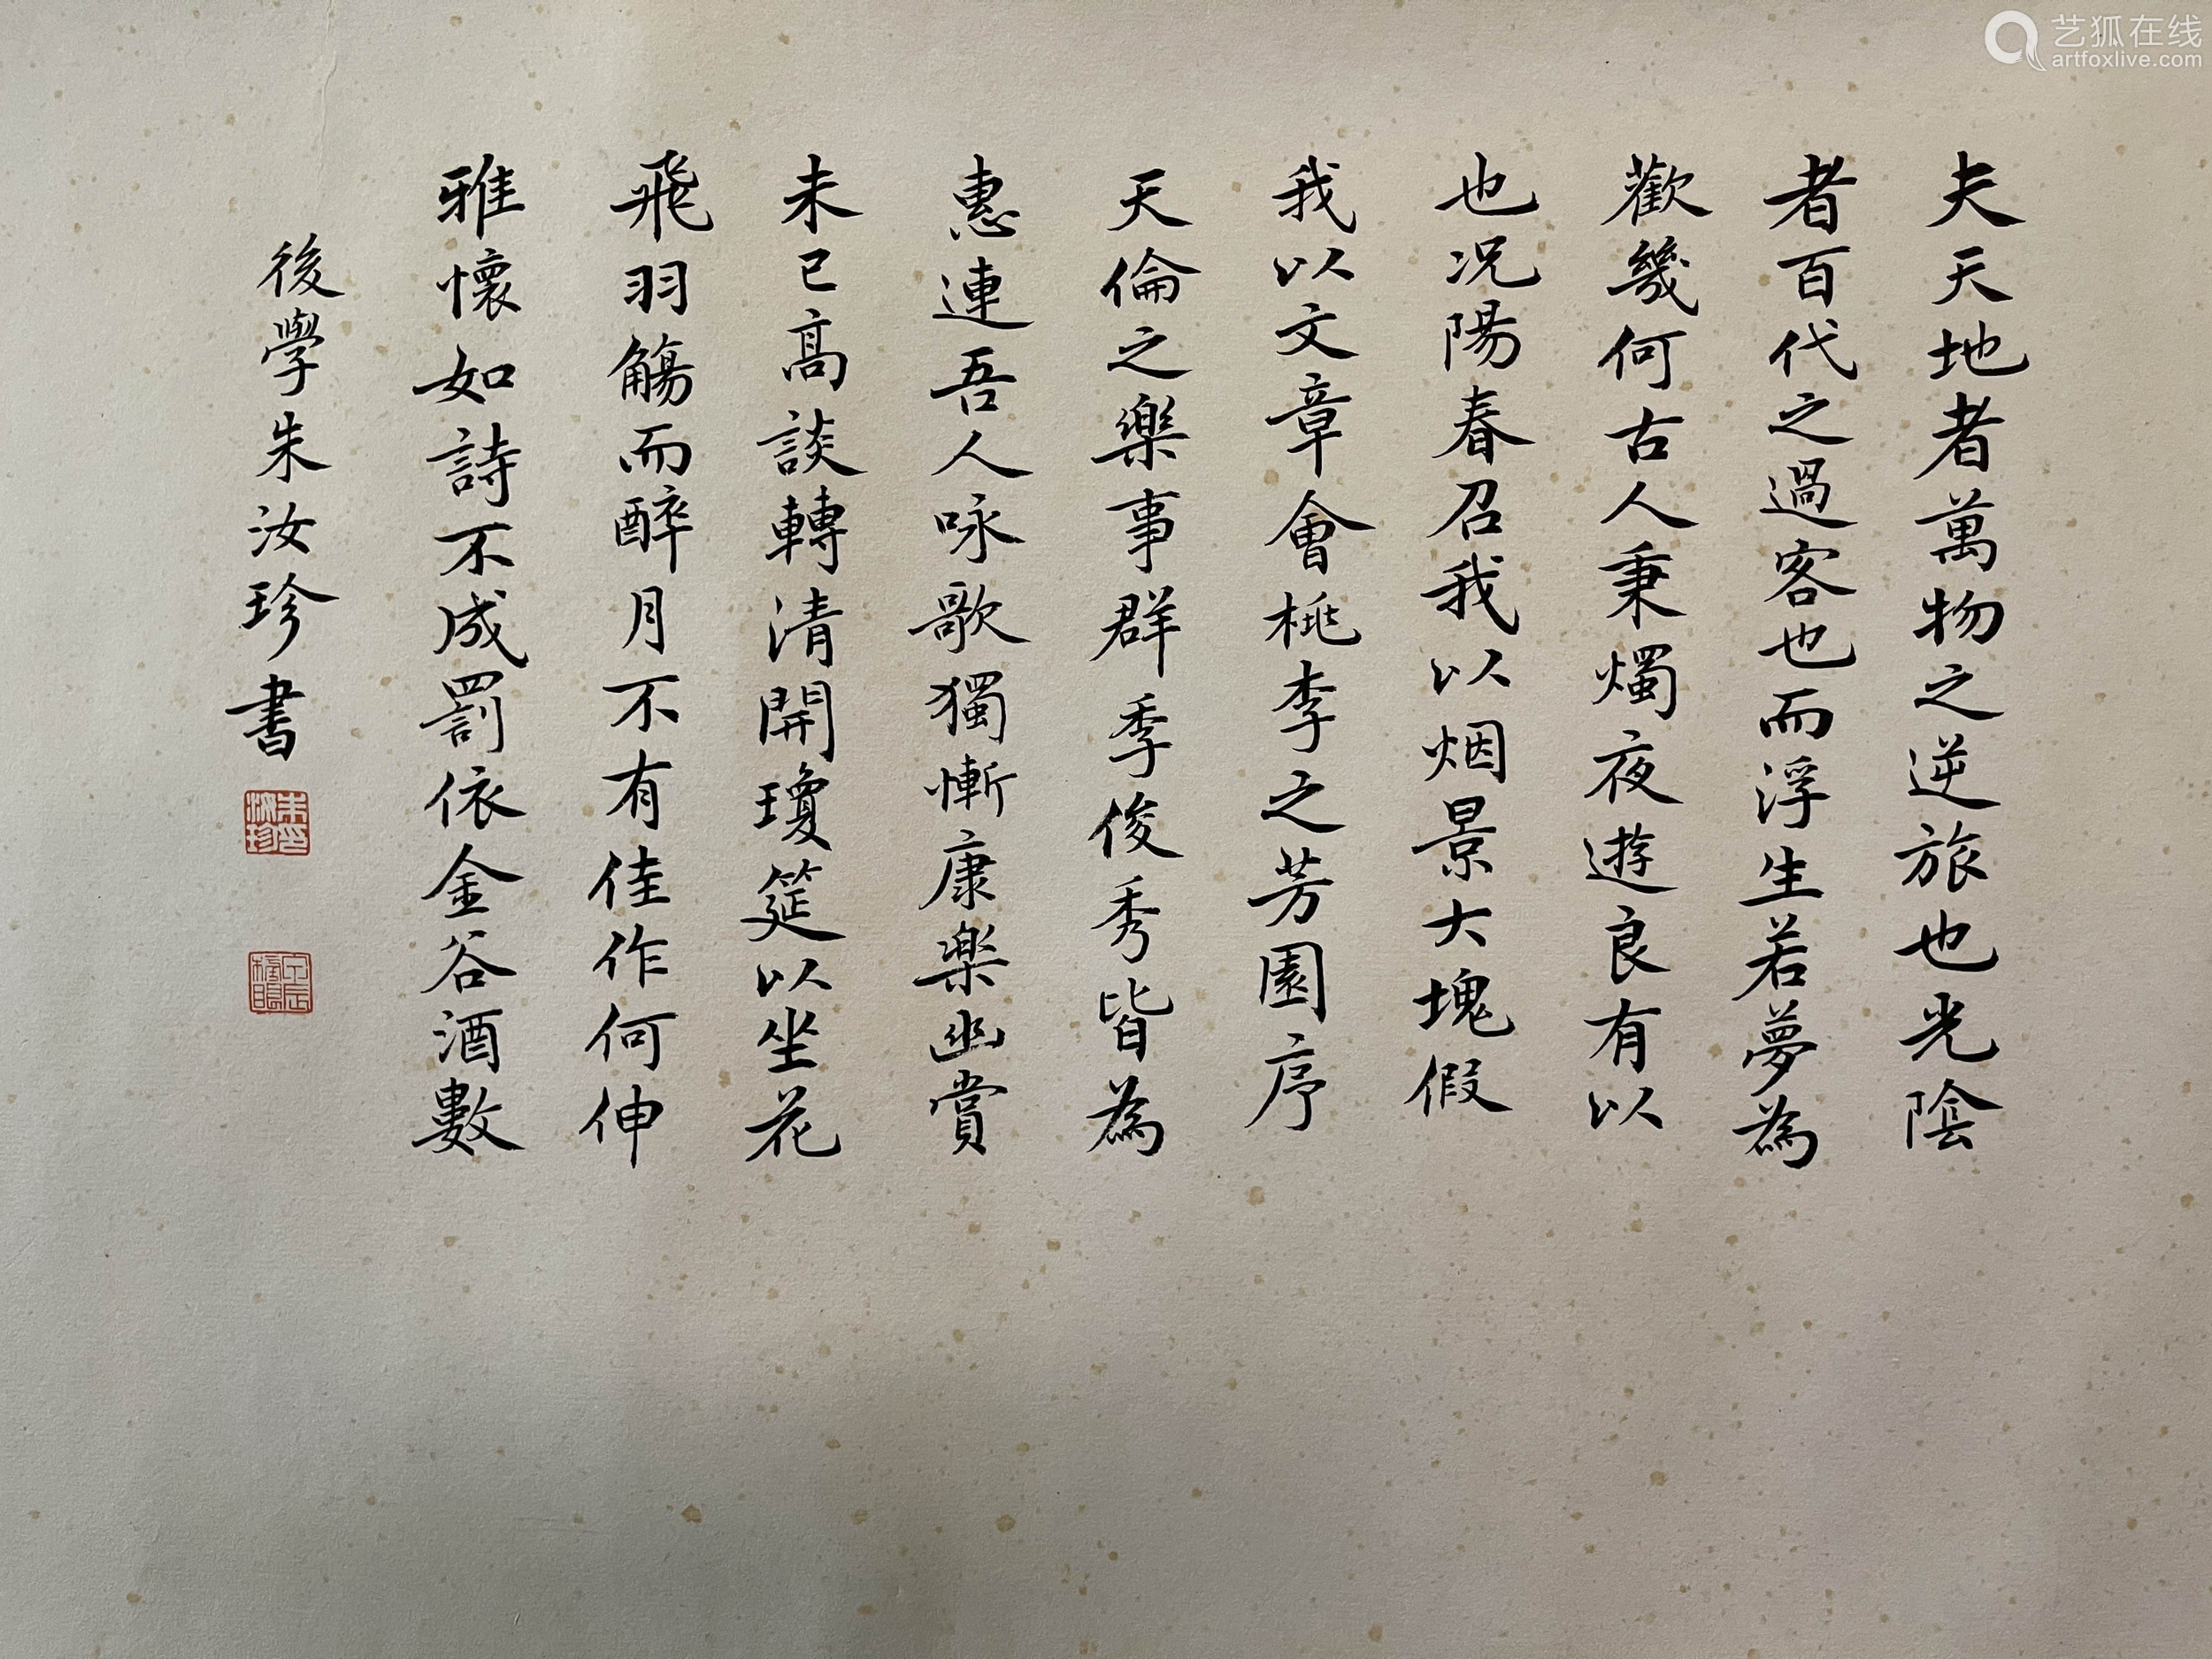 夫天地者萬物之逆旅也光陰
者百代之過客也而浮生若夢為
歡幾何古人秉燭夜遊良有以
也况陽春召我以烟景大塊假
我以文章會桃李之芳園序
天倫之樂事群季俊秀皆為
惠連吾人咏歌獨慚康樂幽賞
未已高談轉清開瓊筵以坐花
飛羽觴而醉月不有佳作何伸
雅懷如詩不成罰依金谷酒數
後學朱汝珍書
朱印汝珍
甲辰榜眼
艺狐在线
artfoxlive.com